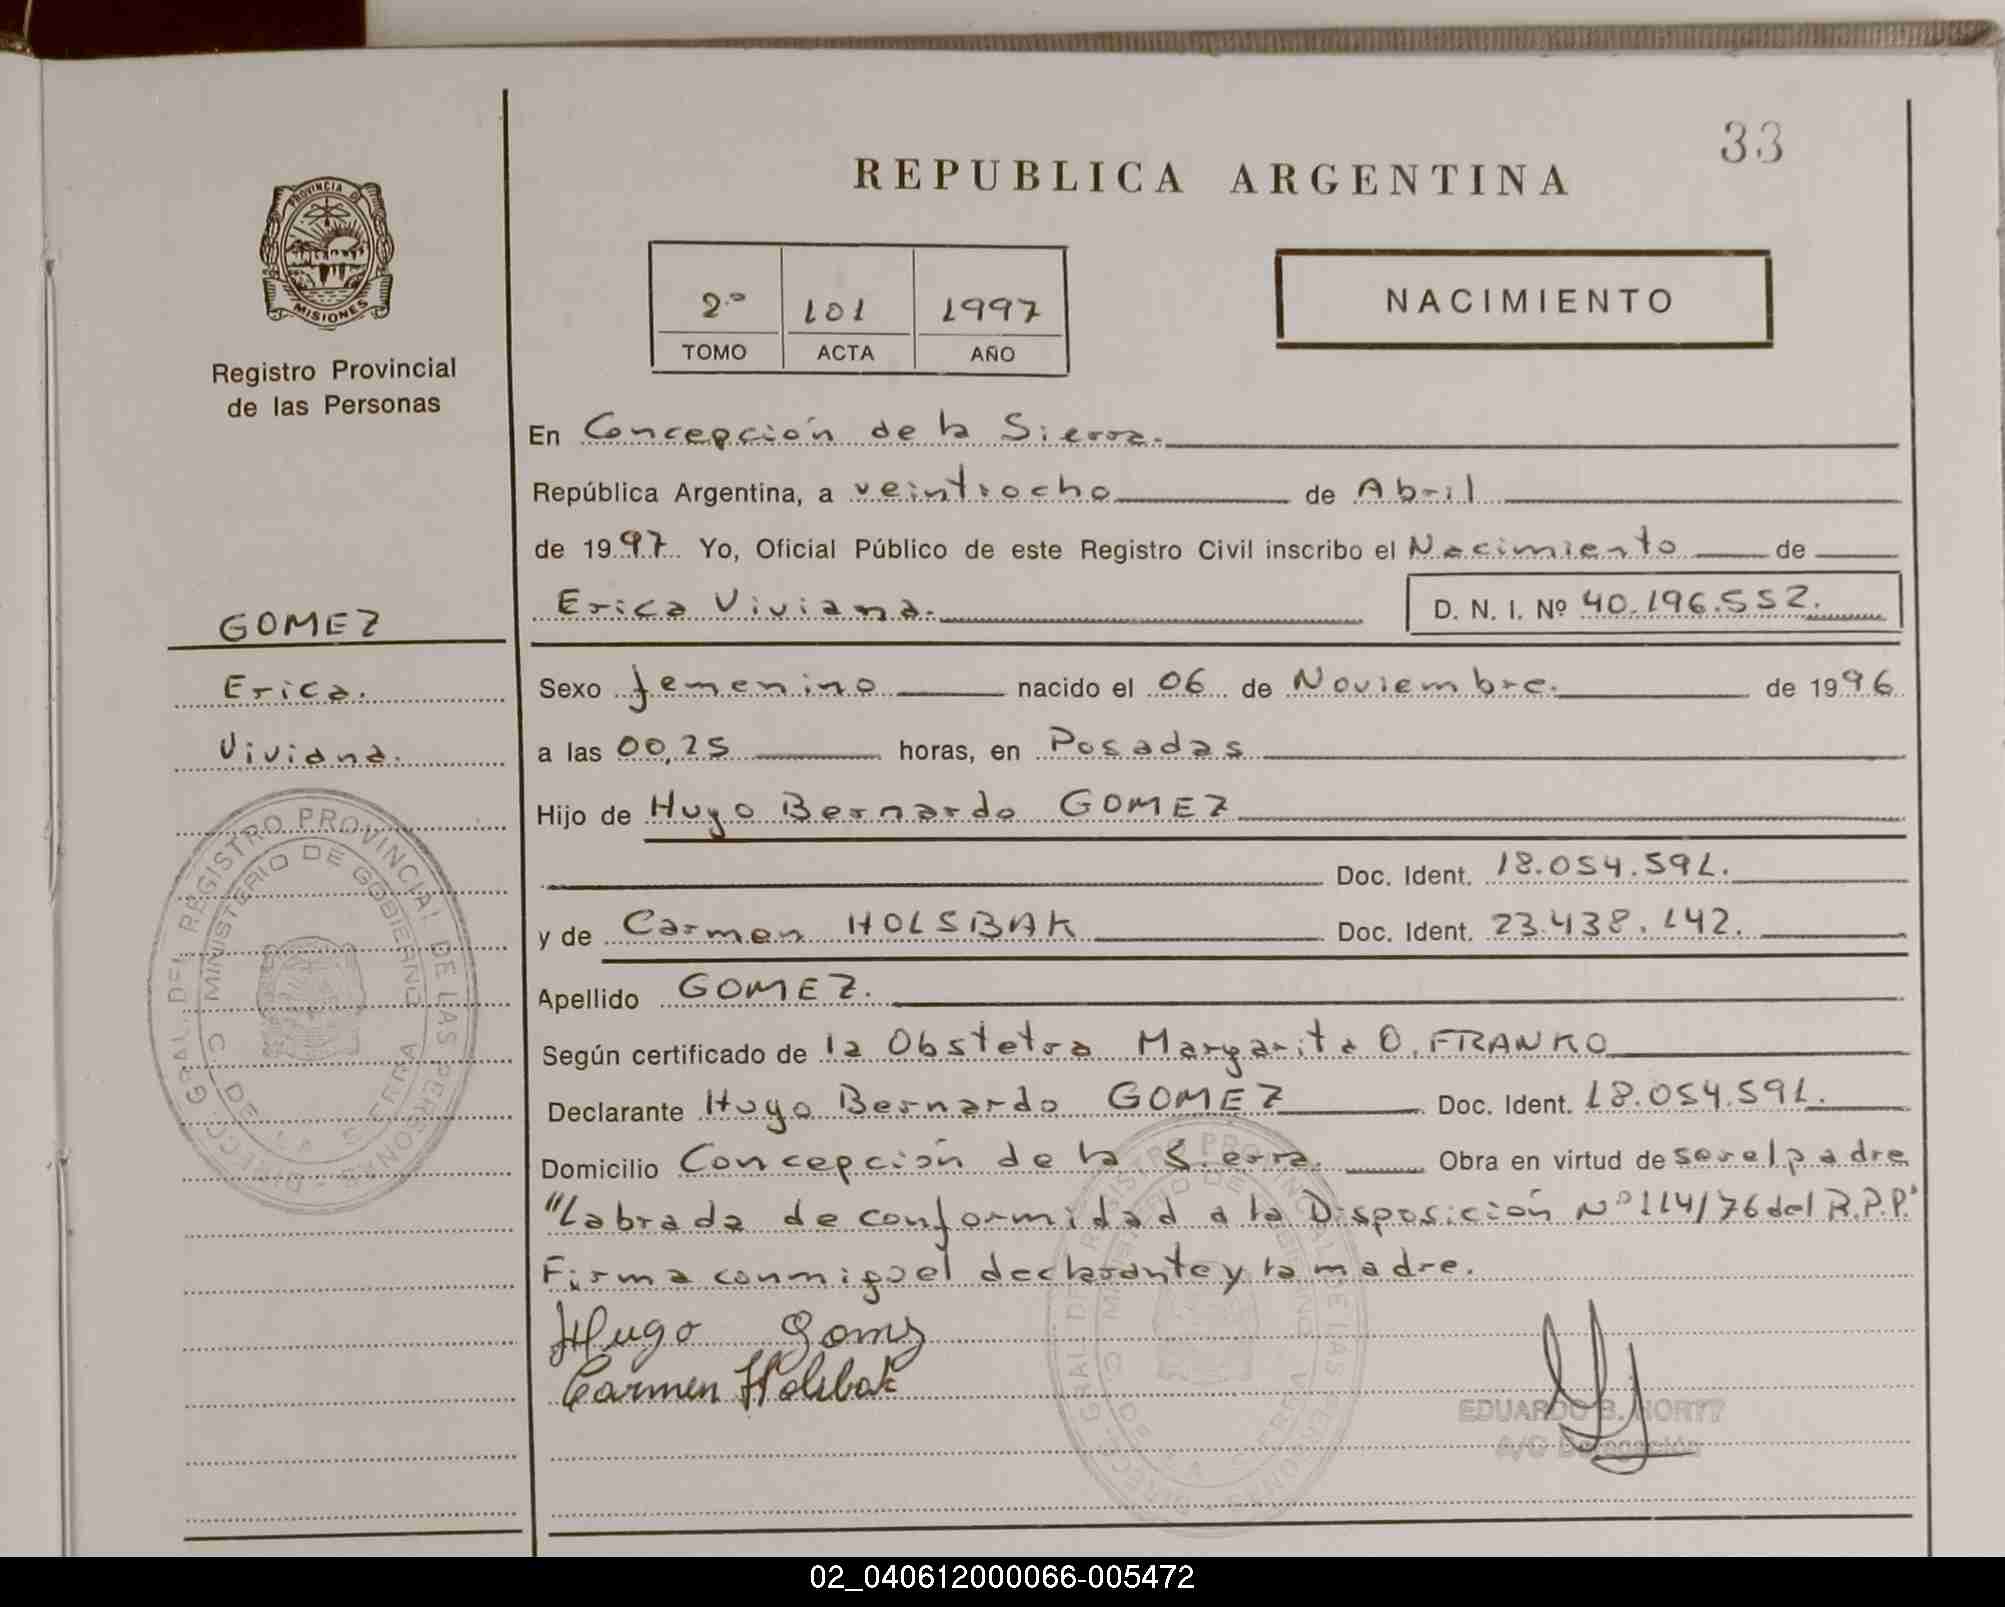 33
REPUBLICA ARGENTINA
PROVINCIA DE
MISIONES
Registro Provincial
de las Personas
2º 101 1997
TOMO ACTA AÑO
NACIMIENTO
En Concepción de la Sierra.
República Argentina, a veintiocho de Abril
de 1997 Yo, Oficial Público de este Registro Civil inscribo el Nacimiento de
Erica Viviana. D. N. I. Nº 40.196.552.
GOMEZ
Erica.
Viviana.
Sexo femenino nacido el 06 de Noviembre. de 1996
a las 00,25 horas, en Posadas
Hijo de Hugo Bernardo GOMEZ
Doc. Ident. 18.054.591.
y de Carmen HOLSBAK Doc. Ident. 23.438.142.
Apellido GOMEZ.
Según certificado de la Obstetra Margarita O. FRANKO
Declarante Hugo Bernardo GOMEZ Doc. Ident. 18.054.591.
Domicilio Concepción de la Sierra. Obra en virtud de ser el padre
"Labrada de conformidad a la Disposición Nº 114/76 del R.P.P."
Firma conmigo el declarante y la madre.
Hugo Gomez
Carmen Holsbak
EDUARDO B.
A/C Delegación
DIRECC. GRAL. DEL REGISTRO PROVINCIAL DE LAS PERSONAS
MINISTERIO DE GOBIERNO
C. DE LA SIERRA
DIRECC. GRAL. DEL REGISTRO PROVINCIAL DE LAS PERSONAS
MINISTERIO DE GOBIERNO
C. DE LA SIERRA
02_040612000066-005472